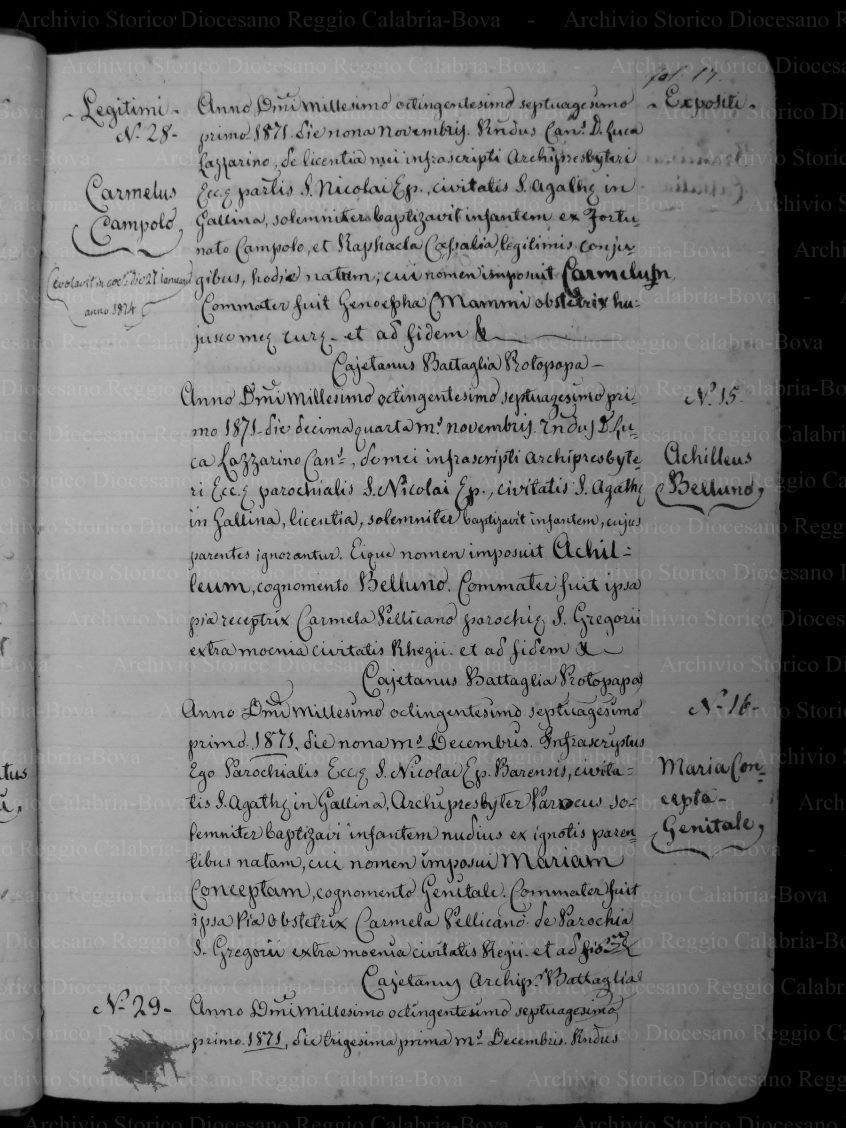 fol. 17.
Legitimi -
N.º 28 -
Carmelus
Campolo
(evolavit in coel. die 27 Januarii
anno 1874
Anno Dñi Millesimo octingentesimo septuagesimo
primo 1871. die nona Novembris. Rñdus Can.s D. Luca
Lazzarino, de licentia mei infrascripti Archipresbyteri
Eccę partis S. Nicolai Ep., civitatis S. Agathę in
Gallina, solemniter baptizavit infantem ex Fortu-
nato Campolo, et Raphaela Cassalia, legitimis conju-
gibus, hodie natum; cui nomen imposuit Carmelum,
Commater fuit Genoepha Mammi obstetrix hu-
jusce meę curę - et ad fidem
Cajetanus Battaglia Rotopapa -
- Expositi -
N.º 15
Achilleus
Belluno,
Anno Dñi Millesimo octingentesimo septuagesimo pri-
mo 1871 - die decima quarta m.s Novembris. Rñdus D. Lu-
ca Lazzarino Can.s, de mei infrascripti Archipresbyte-
ri Eccę parochialis S. Nicolai Ep., civitatis S. Agathę
in Gallina, licentia, solemniter baptizavit infantem, cujus
parentes ignorantur. Eique nomen imposuit Achil-
leum, cognomento Belluno. Commater fuit ipsa
pia receptrix Carmela Pellicano parochię S. Gregorii
extra moenia civitatis Rhegii - et ad fidem
Cajetanus Battaglia Rotopapa
N.º 16 -
Maria Con-
cepta -
Genitale,
Anno Dñi Millesimo octingentesimo septuagesimo
primo 1871. die nona m.s Decembris. Infrascriptus
Ego Parochialis Eccę S. Nicolai Ep. Barensis, civita-
tis S. Agathę in Gallina, Archipresbyter Parocus so-
lemniter baptizavi infantem nudius ex ignotis paren-
tibus natam, cui nomen imposui Mariam
Conceptam, cognomento Genitale. Commater fuit
ipsa Pia obstetrix Carmela Pellicano de Parochia
S. Gregorii extra moenia civitatis Regii - et ad fid.
Cajetanus Archip.r Battaglia
N.º 29 -
Anno Dñi Millesimo octingentesimo septuagesimo
primo 1871, die trigesima prima m.s Decembris. Rñdus
Archivio Storico Diocesano Reggio Calabria-Bova